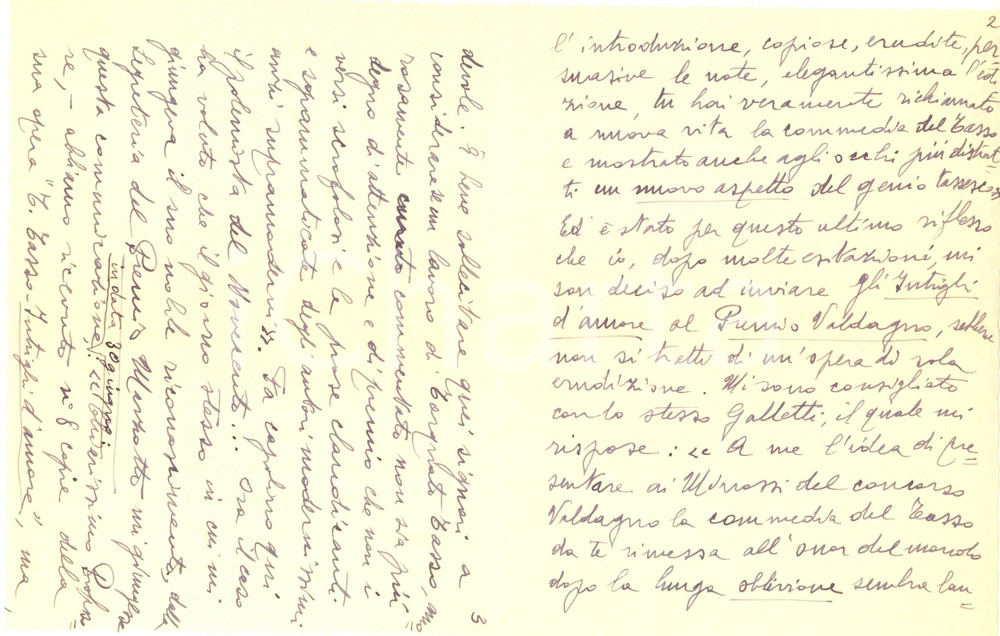 2
l'introduzione, copiose, erudite, per-
suasive le note, elegantissima l'edi-
zione, tu hai veramente richiamato
a nuova vita la commedia del Tasso
e mostrato anche agli occhi più distrat-
ti un nuovo aspetto del genio tassesco.
Ed è stato per questo ultimo riflesso
che io, dopo molte esitazioni, mi
son deciso ad inviare gli Intrighi
d'amore al Premio Valdagno, sebbene
non si tratti di un'opera di sola
erudizione. Mi sono consigliato
con lo stesso Galletti, il quale mi
rispose: << A me l'idea di pre=
sentare ai Minossi del concorso
Valdagno la commedia del Tasso
da te rimessa all'onor del mondo
dopo la lunga oblivione sembra lau=
3
devole. È bene sollecitare quei signori a
considerare se un lavoro di Torquato Tasso,
rosamente curato commentato non sia più
degno d'attenzione e di premio che non i
versi scrofolosi e le prose claudicanti
e sgrammaticate degli autori modernissimi
anzi supramodernis. Fa capolino qui
il polemista del Novecento... Ora il caso
ha voluto che il giorno stesso in cui mi
giungeva il suo nobile riconoscimento, dalla
Segreteria del Premio Marzotto mi giungesse
questa comunicazione, in data 30 giugno: << Chiarissimo Profes=
sore, - abbiamo ricevuto n° 8 copie della
sua opera "T. Tasso - Intrighi d'amore", ma